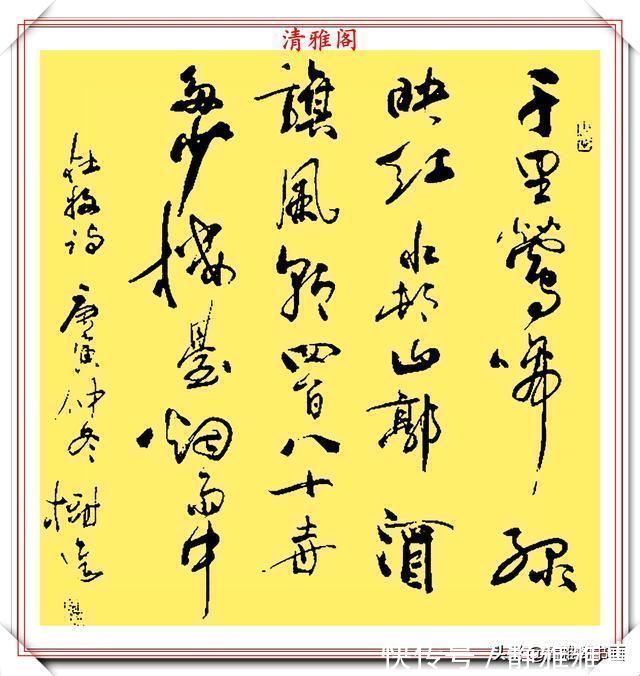 清雅阁
千里鶯啼绿
映红水邨山郭酒
旗風朝四百八十寺
多少楼臺烟雨中
杜牧诗 庚寅仲冬
快传号 / 静雅雅